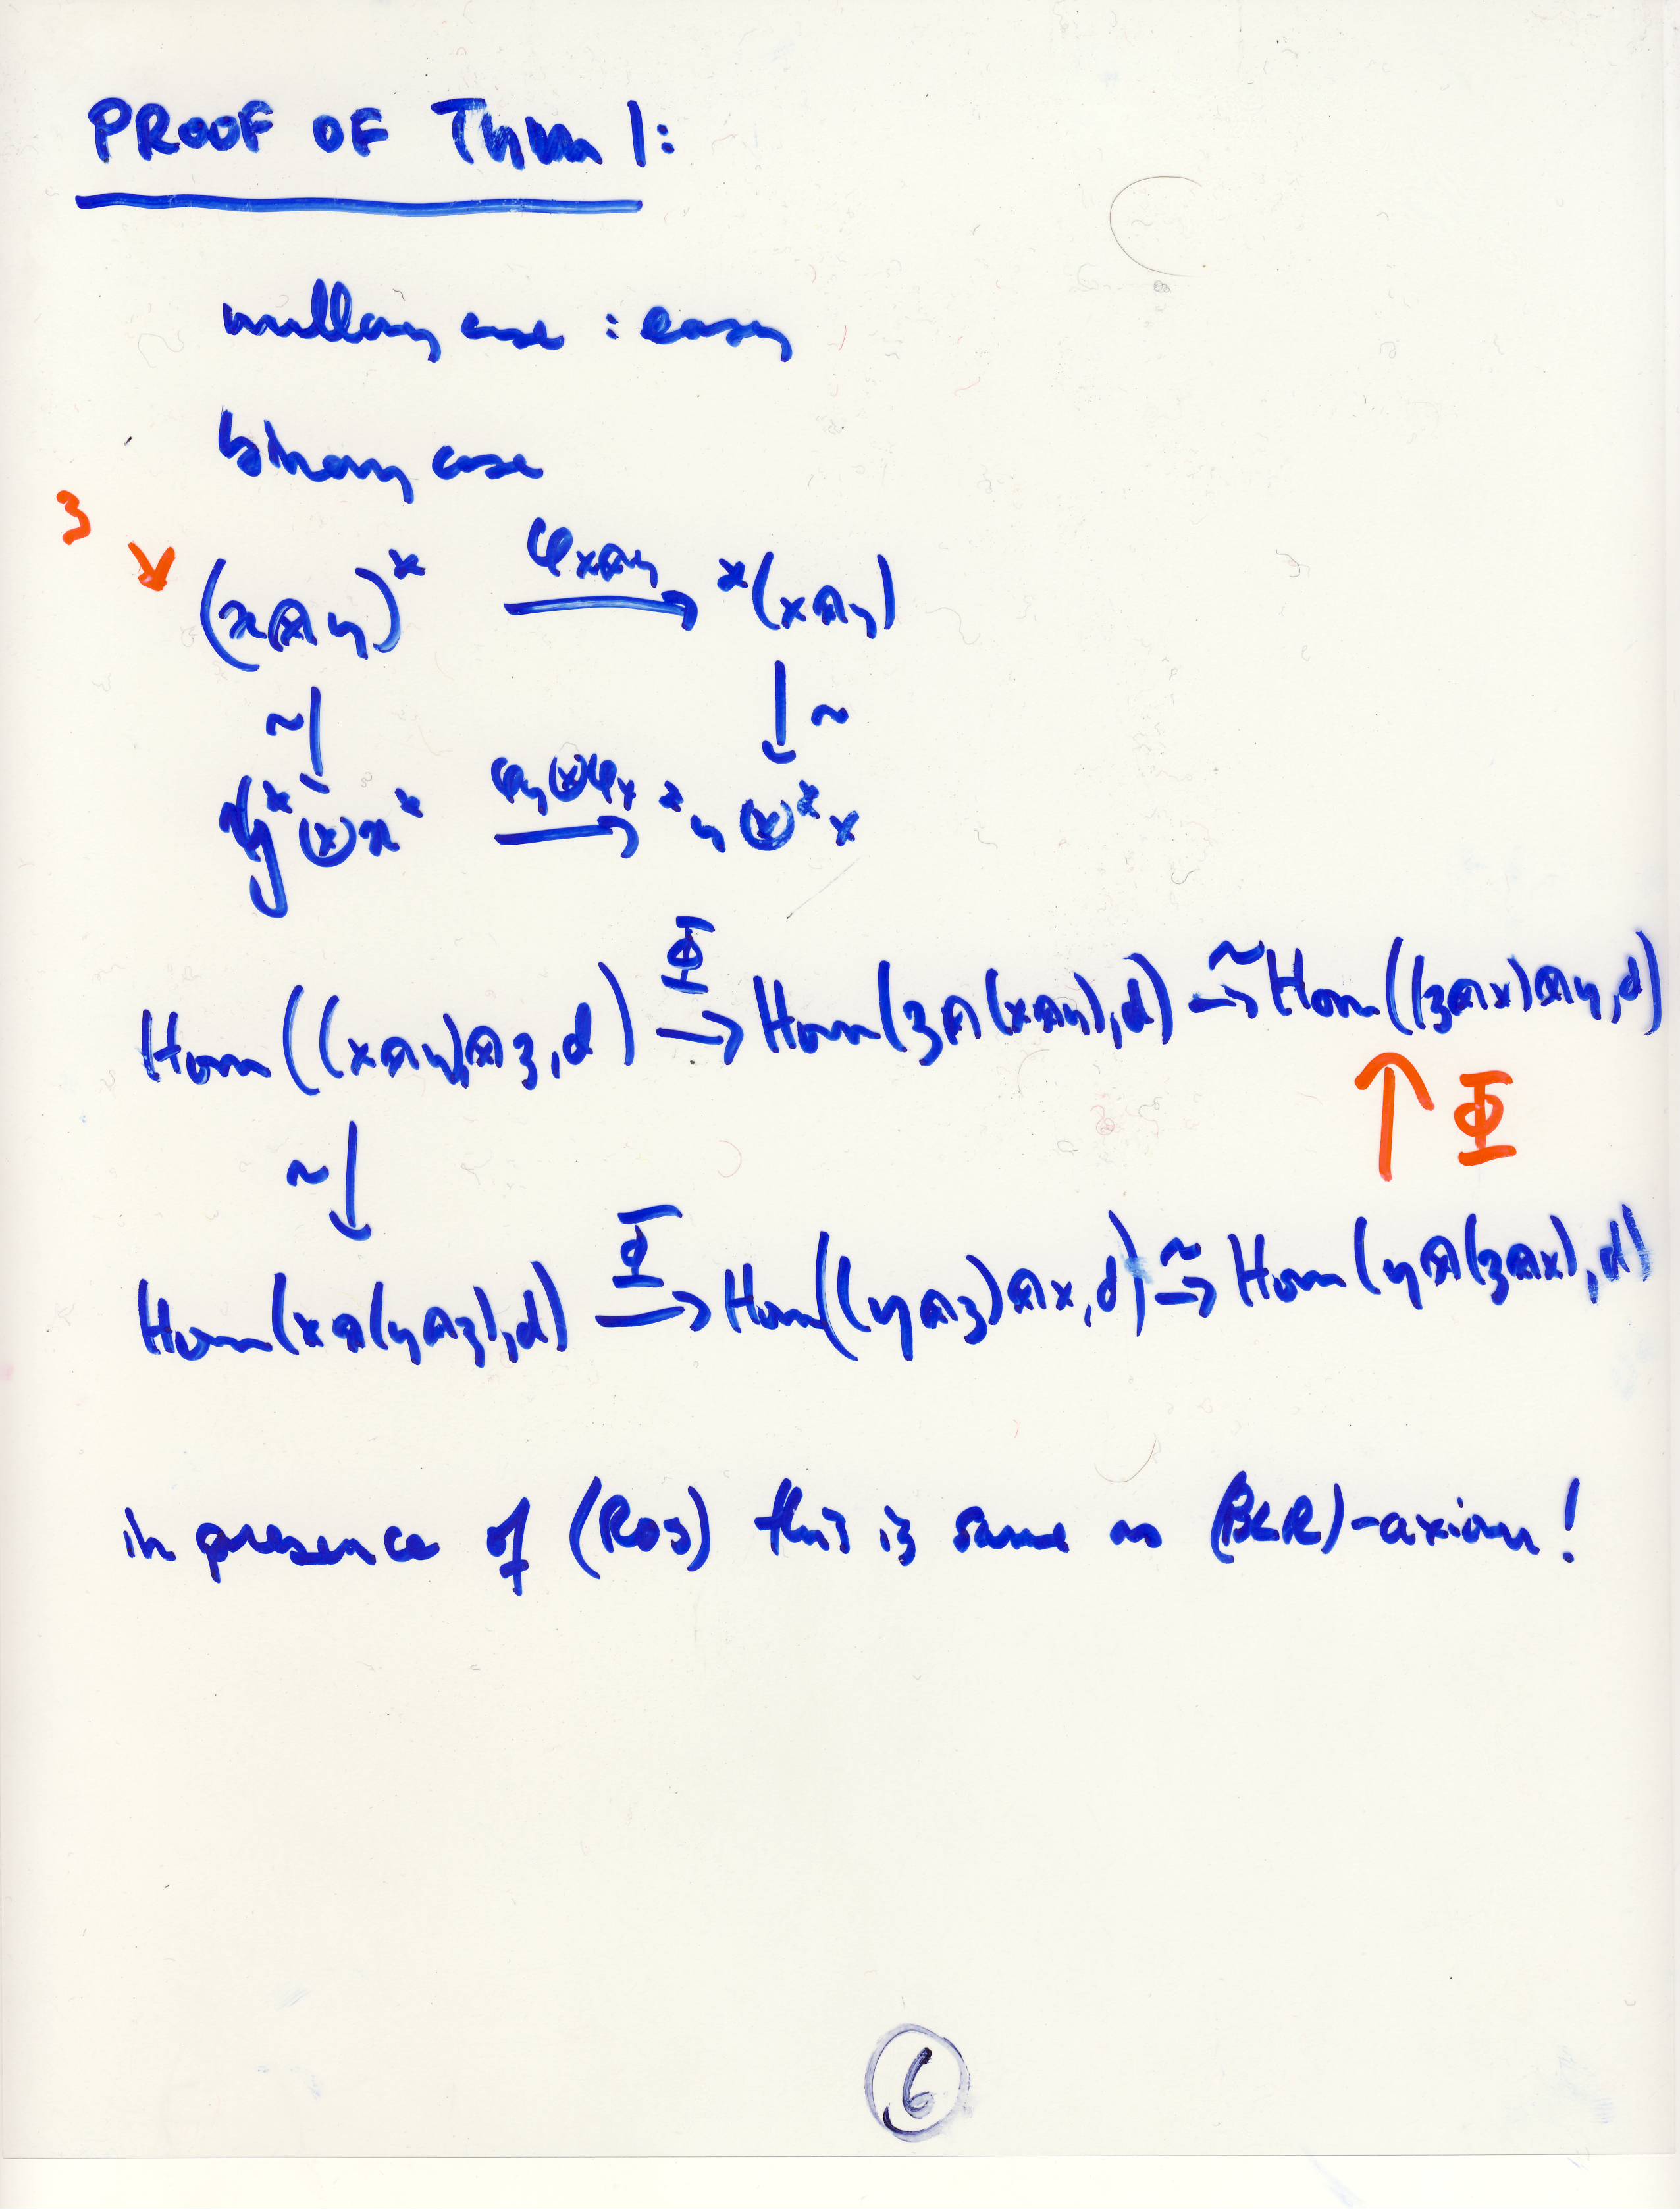 PROOF OF Thm 1:
nullary case : easy
binary case
z
(x⊗y)* →^{φ_{x⊗y}} *(x⊗y)
~↓ ↓~
y*⊗x* →^{φ_y⊗φ_x} *y⊗*x
Hom((x⊗y)⊗z,d) →^Φ Hom(z⊗(x⊗y),d) →^~ Hom((z⊗x)⊗y,d)
~↓ ↑Φ
Hom(x⊗(y⊗z),d) →^Φ Hom((y⊗z)⊗x,d) →^~ Hom(y⊗(z⊗x),d)
in presence of (Ros) this is same as (BLR)-axiom!
6